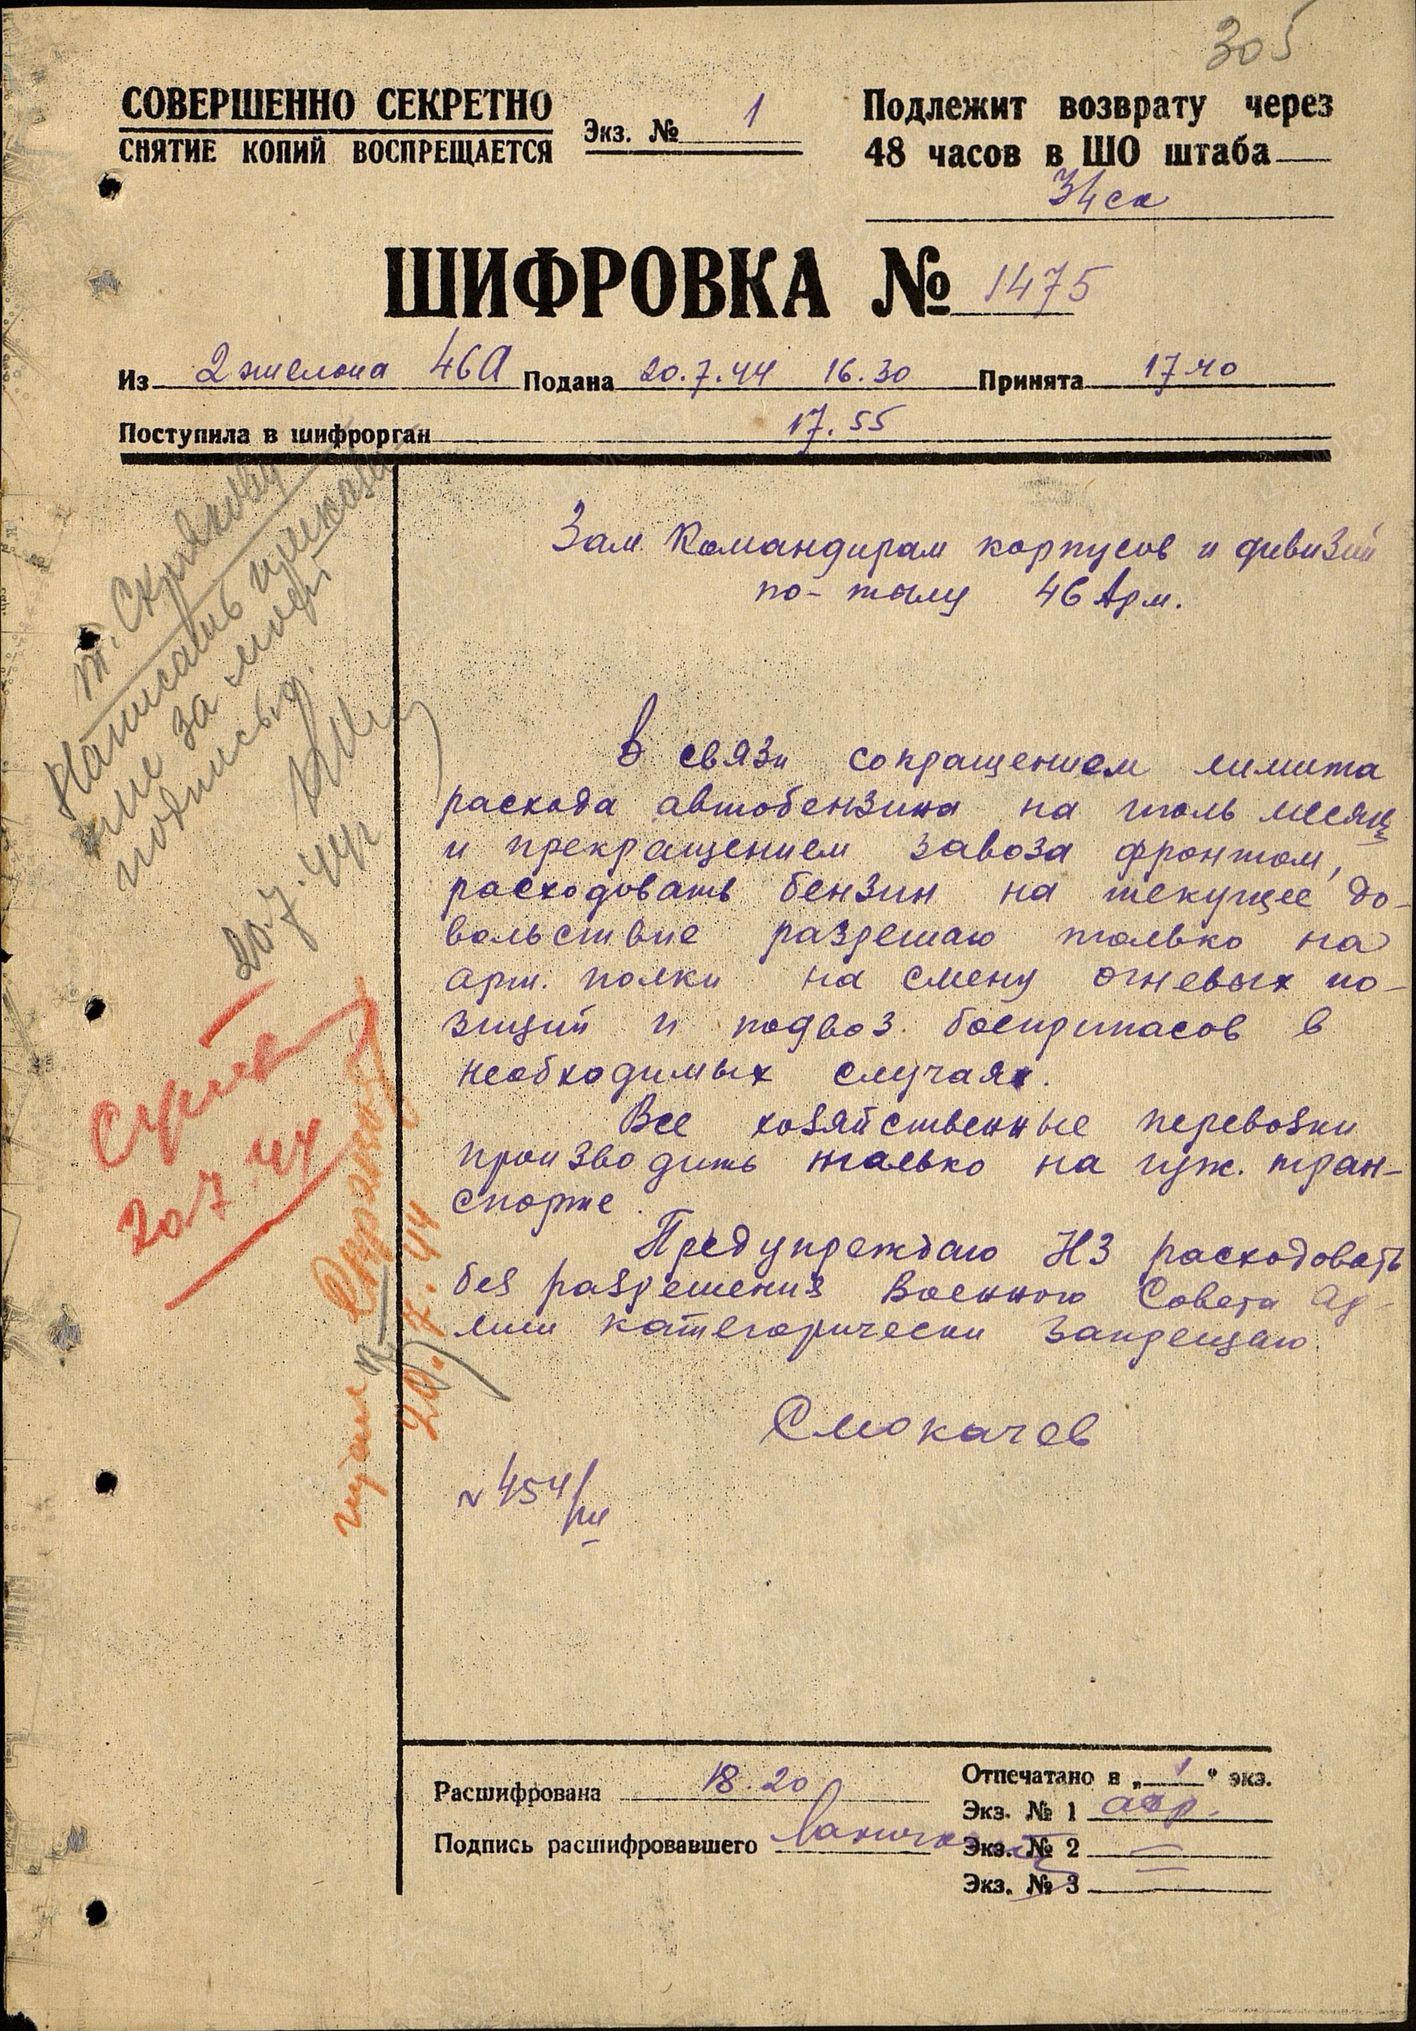 305
СОВЕРШЕННО СЕКРЕТНО
СНЯТИЕ КОПИЙ ВОСПРЕЩАЕТСЯ
Экз. № 1
Подлежит возврату через
48 часов в ШО штаба
34 ск
ШИФРОВКА № 1475
Из 2 эшелона 46А Подана 20.7.44 16.30 Принята 17 40
Поступила в шифрорган 17.55
т. Скрякову
Написать указа-
ние за моей
подписью.
20.7.44г
20.7.44
20.7.44
Зам. Командирам корпусов и дивизий
по-тылу 46 Арм.
В связи сокращением лимита
расхода автобензина на июль месяц
и прекращением завоза фронтом,
расходовать бензин на текущее до-
вольствие разрешаю только на
арт. полки на смену огневых по-
зиций и подвоз боеприпасов в
необходимых случаях.
Все хозяйственные перевозки
производить только на гуж. тран-
спорте.
Предупреждаю НЗ расходовать
без разрешения Военного Совета Ар-
мии категорически запрещаю.
Смокачев
№ 454/ш
Расшифрована 18.20
Подпись расшифровавшего
Отпечатано в „1" экз.
Экз. № 1 адр.
Экз. № 2 —
Экз. № 3 —